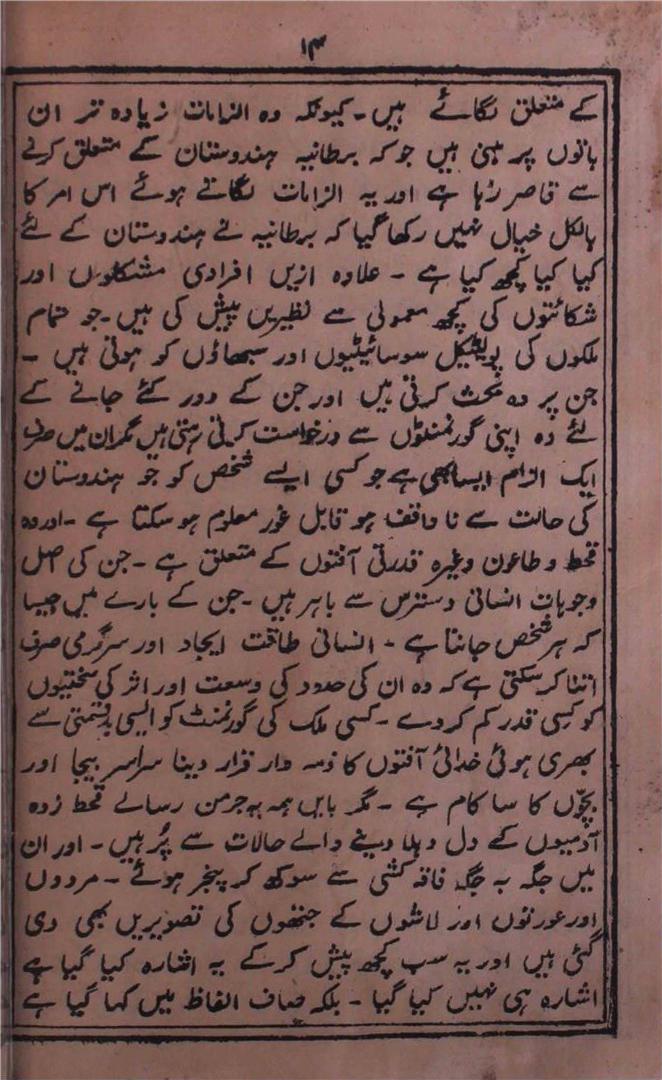 ۱۳
کے متعلق لگائے ہیں۔ کیونکہ وہ الزامات زیادہ تر ان
باتوں پر مبنی ہیں جو کہ برطانیہ ہندوستان کے متعلق کرنے
سے قاصر رہا ہے اور یہ الزامات لگاتے ہوئے اس امر کا
بالکل خیال نہیں رکھا گیا کہ برطانیہ نے ہندوستان کے لئے
کیا کیا کچھ کیا ہے ۔ علاوہ ازیں افرادی مشکلوں اور
شکائتوں کی کچھ معمولی سے نظیریں پیش کی ہیں۔ جو تمام
ملکوں کی پولیٹیکل سوسائیٹیوں اور سبھاؤں کو ہوتی ہیں ۔
جن پر وہ بحث کرتی ہیں اور جن کے دور کئے جانے کے
لئے وہ اپنی گورنمنٹوں سے درخواست کرتی رہتی ہیں مگر ان میں صرف
ایک الزام ایسا بھی ہے جو کسی ایسے شخص کو جو ہندوستان
کی حالت سے نا واقف ہو قابل غور معلوم ہو سکتا ہے ۔ اور وہ
قحط و طاعون وغیرہ قدرتی آفتوں کے متعلق ہے ۔ جن کی اصل
وجوہات انسانی دسترس سے باہر ہیں ۔ جن کے بارے میں جیسا
کہ ہر شخص جانتا ہے ۔ انسانی طاقت ایجاد اور سرگرمی صرف
اتنا کر سکتی ہے کہ وہ ان کی حدود کی وسعت اور اثر کی سختیوں
کو کسی قدر کم کر دے ۔ کسی ملک کی گورنمنٹ کو ایسی بدقسمتی سے
بھری ہوئی خدائی آفتوں کا ذمہ وار قرار دینا سراسر بیجا اور
بچّوں کا سا کام ہے ۔ مگر بایں ہمہ یہ جرمن رسالے قحط زدہ
آدمیوں کے دل دہلا دینے والے حالات سے پُر ہیں ۔ اور ان
میں جگہ بہ جگہ فاقہ کشی سے سوکھ کر پنجر ہوئے ۔ مردوں
اور عورتوں اور لاشوں کے جتھوں کی تصویریں بھی دی
گئی ہیں اور یہ سب کچھ پیش کر کے یہ اشارہ کیا گیا ہے
اشارہ ہی نہیں کیا گیا ۔ بلکہ صاف الفاظ میں کہا گیا ہے